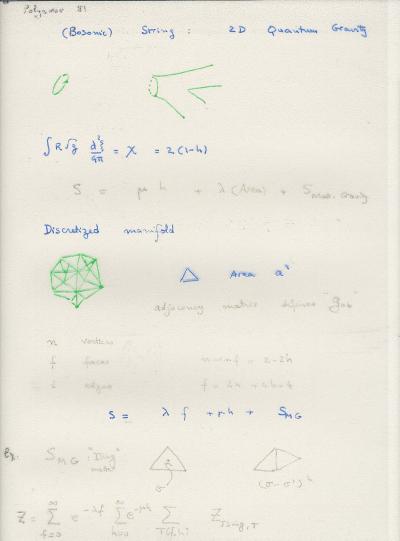 Polyakov 81
(Bosonic) String : 2D Quantum Gravity
∫ R √g d²ξ/4π = χ = 2(1-h)
S = μ h + λ (Area) + S
Discretized manifold
Area a²
adjacency matrix defines "gab"
n vertices
f faces n - i + f = 2 - 2h
i edges f = 2n + 4h - 4
S = λ f + μ h + S_MG
Ex: S_MG : "Ising" matter
σ (σ - σ')²
Z = ∑_{f=0}^∞ e^{-λf} ∑_{h=0}^∞ e^{-μh} ∑_{T(f,h)} Z_{Ising,T}